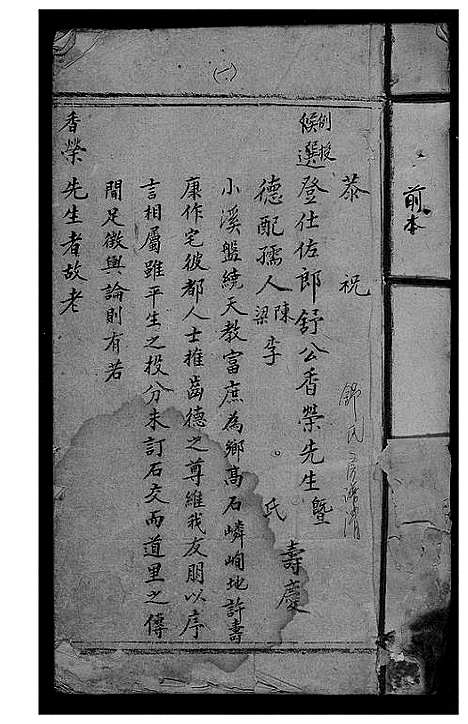 前本
恭祝
例授
候選登仕佐郎舒公香榮先生曁
德配孺人陳梁李氏壽慶
小溪盤繞天教富庶為鄉萬石嶙峋地許壽
康作宅彼都人士推齒德之尊維我友朋以序
言相屬雖平生之投分未訂石交而道里之傳
聞足徵輿論則有若
香榮先生者故老
(一)
舒氏